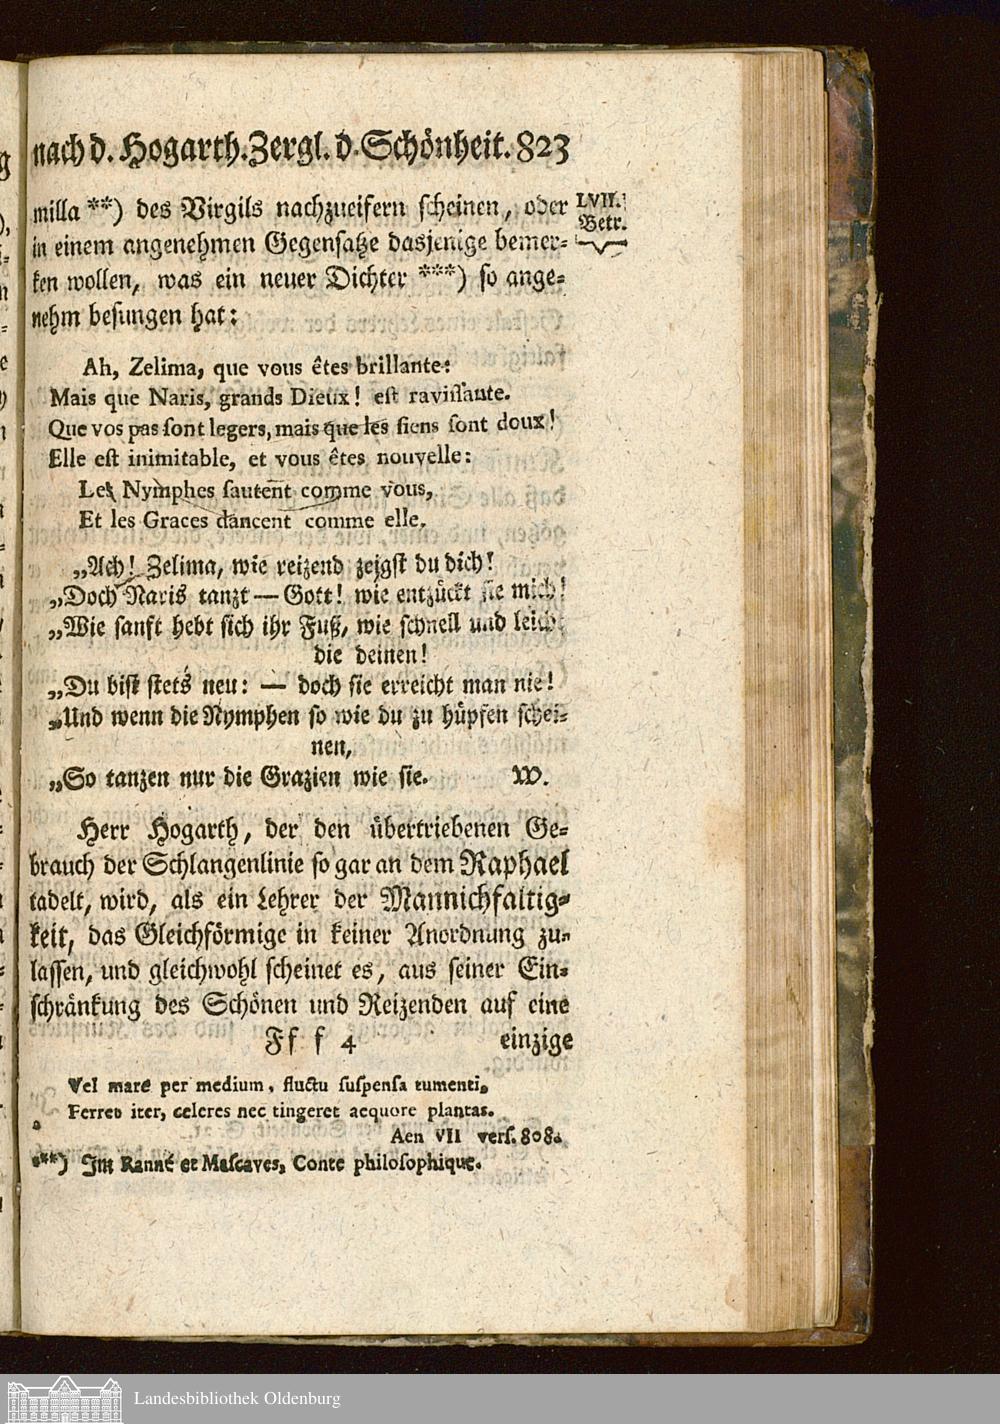 nach d. Hogarth. Zergl. d. Schönheit. 823
LVII.
Betr.
milla **) des Virgils nachzueifern scheinen, oder
in einem angenehmen Gegensatze dasjenige bemer-
ken wollen, was ein neuer Dichter ***) so ange-
nehm besungen hat:
Ah, Zelima, que vous êtes brillante:
Mais que Naris, grands Dieux! est ravissante.
Que vos pas sont legers, mais que les siens sont doux!
Elle est inimitable, et vous êtes nouvelle:
Les Nymphes sautent comme vous,
Et les Graces dancent comme elle.
„Ach! Zelima, wie reizend zeigst du dich!
„Doch Naris tanzt — Gott! wie entzückt sie mich!
„Wie sanft hebt sich ihr Fuß, wie schnell und leicht
die deinen!
„Du bist stets neu: — doch sie erreicht man nie!
„Und wenn die Nymphen so wie du zu hüpfen schei-
nen,
„So tanzen nur die Grazien wie sie. W.
Herr Hogarth, der den übertriebenen Ge-
brauch der Schlangenlinie so gar an dem Raphael
tadelt, wird, als ein Lehrer der Mannichfaltig-
keit, das Gleichförmige in keiner Anordnung zu-
lassen, und gleichwohl scheinet es, aus seiner Ein-
schränkung des Schönen und Reizenden auf eine
Ff f 4 einzige
Vel mare per medium, fluctu suspensa tumenti,
Ferret iter, celeres nec tingeret aequore plantas.
Aen VII vers. 808.
***) Im Ranné et Mascaves, Conte philosophique.
Landesbibliothek Oldenburg